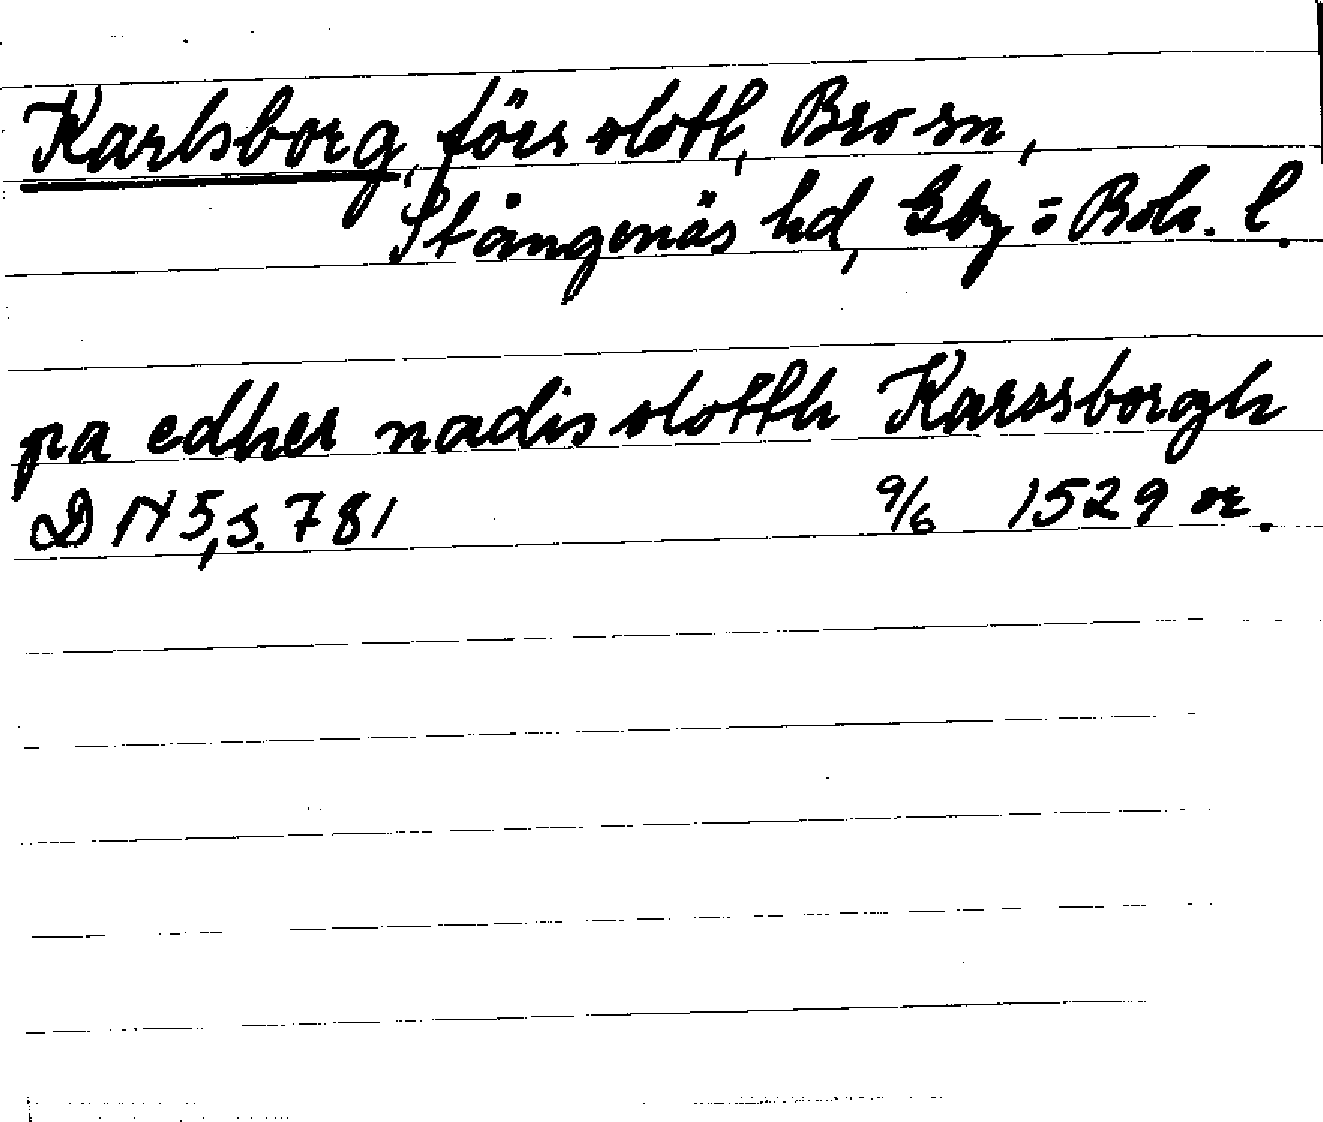 Karlsborg, förr slott, Bro sn,
Stångenäs hd, Gbg o Boh. l.
pa edher nadis slotth Karssborgh
DN 5, s. 781 9/6 1529 or.